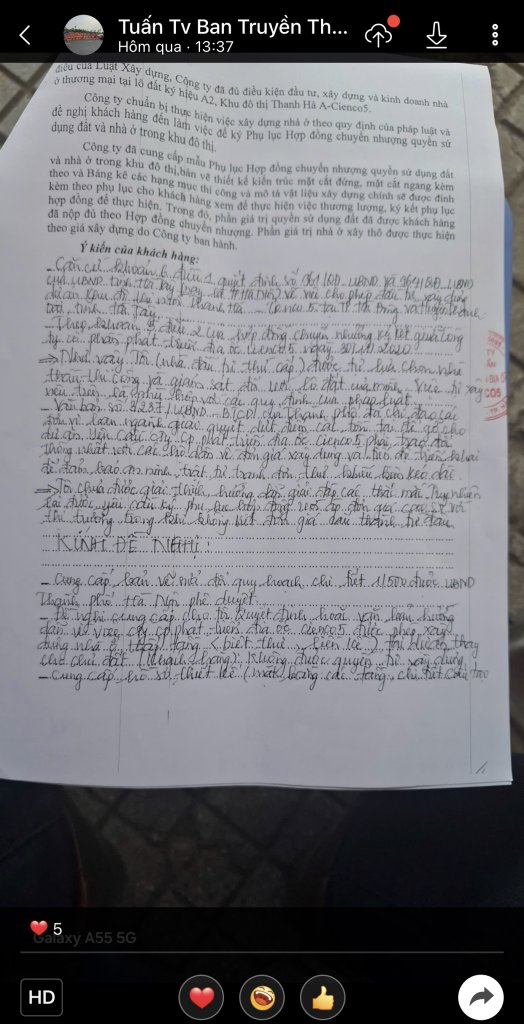 Tuấn Tv Ban Truyền Th...
Hôm qua · 13:37
điều của Luật Xây dựng, Công ty đã đủ điều kiện đầu tư, xây dựng và kinh doanh nhà
ở thương mại tại lô đất ký hiệu A2, Khu đô thị Thanh Hà A-Cienco5.
Công ty chuẩn bị thực hiện việc xây dựng nhà ở theo quy định của pháp luật và
đề nghị khách hàng đến làm việc để ký Phụ lục Hợp đồng chuyển nhượng quyền sử
dụng đất và nhà ở trong khu đô thị.
Công ty đã cung cấp mẫu Phụ lục Hợp đồng chuyển nhượng quyền sử dụng đất
và nhà ở trong khu đô thị, bản vẽ thiết kế kiến trúc mặt cắt đứng, mặt cắt ngang kèm
theo và Bảng kê các hạng mục thi công và mô tả vật liệu xây dựng chính sẽ được đính
kèm theo phụ lục cho khách hàng xem để thực hiện việc thương lượng, ký kết phụ lục
hợp đồng để thực hiện. Trong đó, phần giá trị quyền sử dụng đất đã được khách hàng
đã nộp đủ theo Hợp đồng chuyển nhượng. Phần giá trị nhà ở xây thô được thực hiện
theo giá xây dựng do Công ty ban hành.
Ý kiến của khách hàng:
- Căn cứ khoản 6 điều 1 quyết định số UBND và UBND
của UBND tỉnh Hà Tây (nay là TP Hà Nội) về việc cho phép đầu tư xây dựng
dự án khu đô thị mới Thanh Hà - Cienco 5 tại
tỉnh Hà Tây.
- Theo khoản điều 2 của hợp đồng chuyển nhượng ký kết qua công
ty cổ phần phát triển địa ốc Cienco5 ngày 2020
=> Như vậy Tôi (nhà đầu tư thứ cấp) được tự lựa chọn nhà
thầu thi công và giám sát đối với lô đất của mình. Việc tự xây
nêu trên là phù hợp với các quy định của pháp luật.
- Văn bản số 3237/UBND - của Thành phố đã chỉ đạo các
sở ban ngành giải quyết dứt điểm các tồn tại để gỡ cho
dự án. Yêu cầu cty cp phát triển địa ốc Cienco5 phải trao đổi
thống nhất với các hộ dân về đơn giá xây dựng và tiến độ triển khai
để đảm bảo an ninh, trật tự tránh đơn thư khiếu kiện kéo dài.
=> Tôi chưa được giải thích, hướng dẫn giải đáp các thắc mắc. Tuy nhiên
lại được yêu cầu ký phụ lục hợp đồng với áp đơn giá cao so với
thị trường trong khi không biết đơn giá đâu thành từ đâu.
KÍNH ĐỀ NGHỊ:
- Cung cấp bản vẽ mà đồ quy hoạch chi tiết 1/500 được UBND
Thành phố Hà Nội phê duyệt.
- Đề nghị cung cấp cho tôi quyết định hoặc văn bản hướng
dẫn về việc cty cp phát triển địa ốc cienco5 được phép xây
dựng nhà ở thấp tầng (biệt thự, liền kề) tại dự án thay
cho chủ đất (khách hàng). Không được quyền tự xây dựng
- Cung cấp hồ sơ thiết kế (mặt bằng các tầng, chi tiết cấu tạo
TY
CO5
5
Galaxy A55 5G
HD